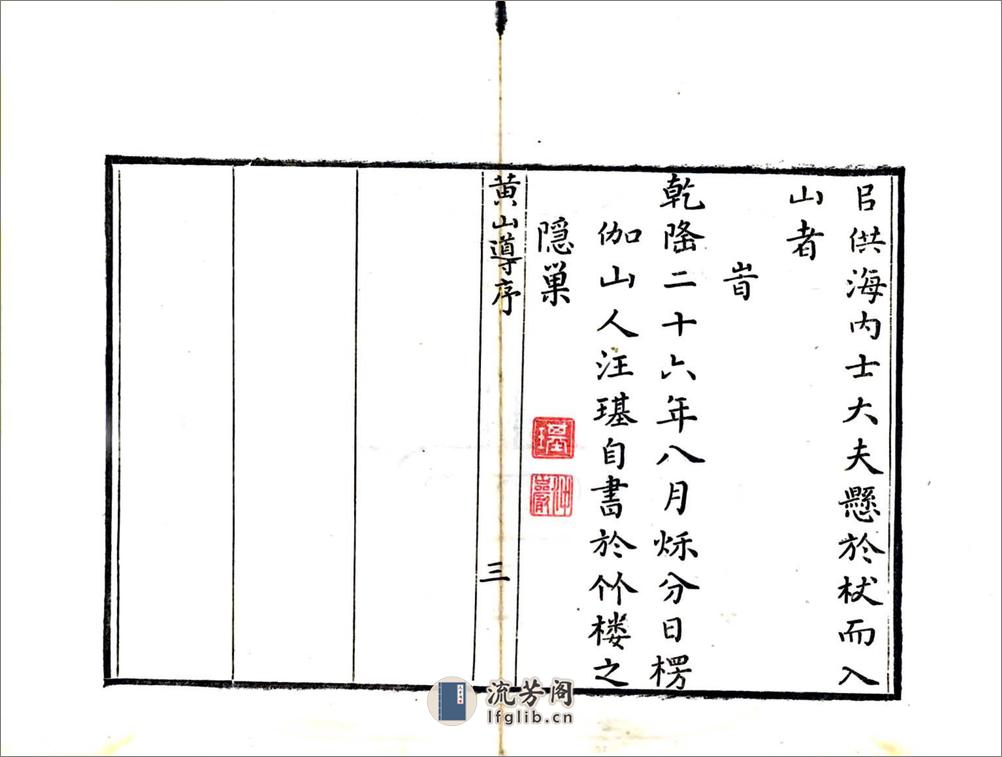 㠯供海内士大夫懸於杖而入
山者
旹
乾隆二十六年八月烁分日楞
伽山人汪璂自書於竹楼之
隠巢
璂
仲巖
黄山導序
三
流芳阁
lfglib.cn